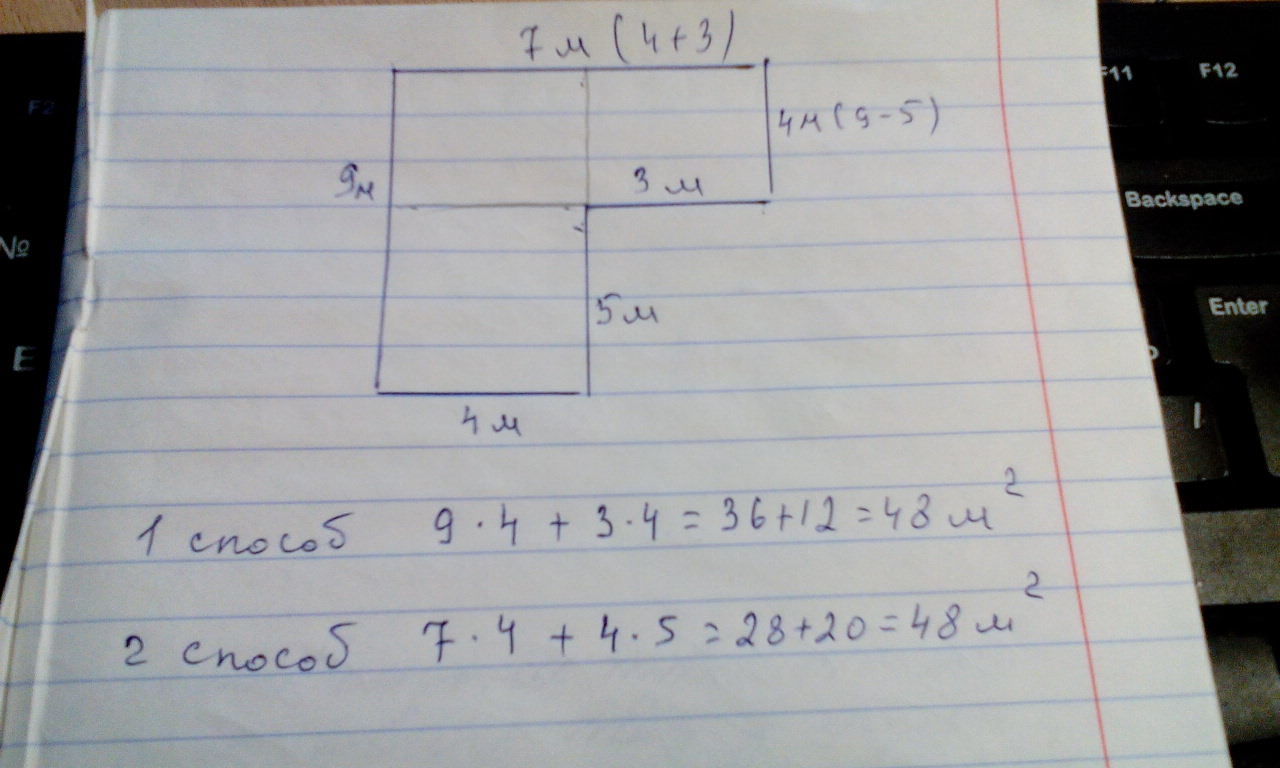 7 м (4+3)
4м (9-5)
9м
3 м
5м
4 м
1 способ 9·4 + 3·4 = 36+12 = 48 м²
2 способ 7·4 + 4·5 = 28+20 = 48 м²
F2
№
E
F11
F12
Backspace
Enter